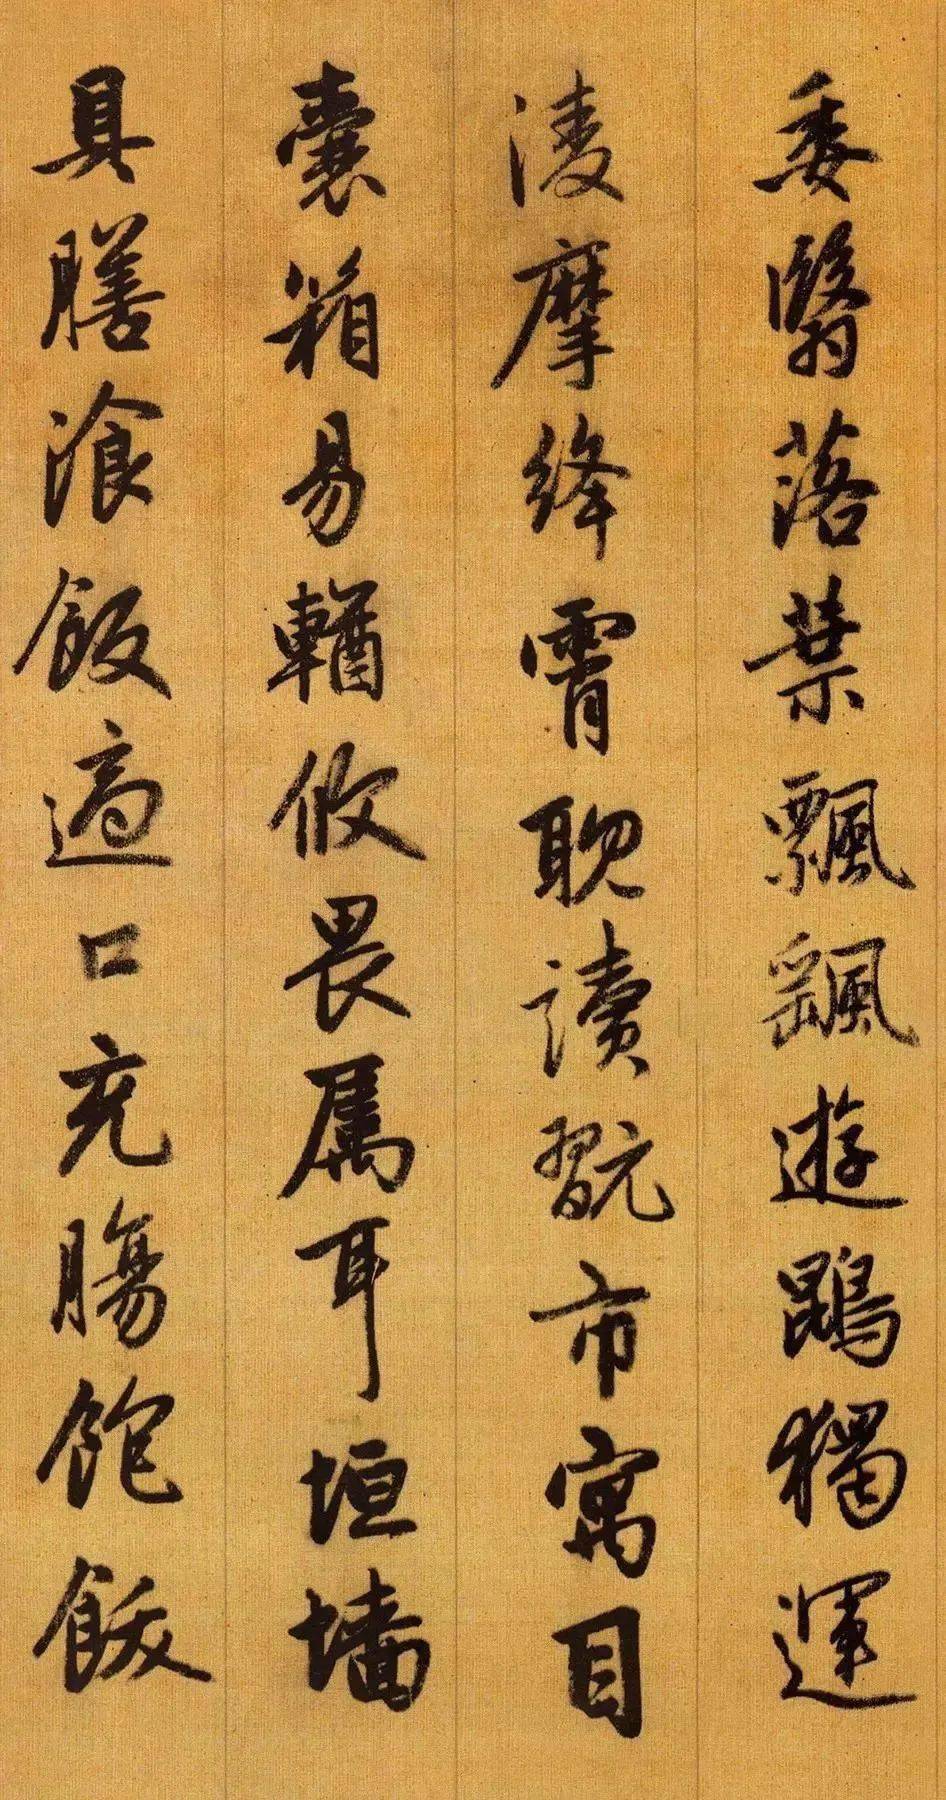 委翳落葉飄飖遊鵾獨運
淩摩絳霄耽讀翫市寓目
囊箱易輶攸畏属耳垣墻
具膳飡飯適口充膓飽飫